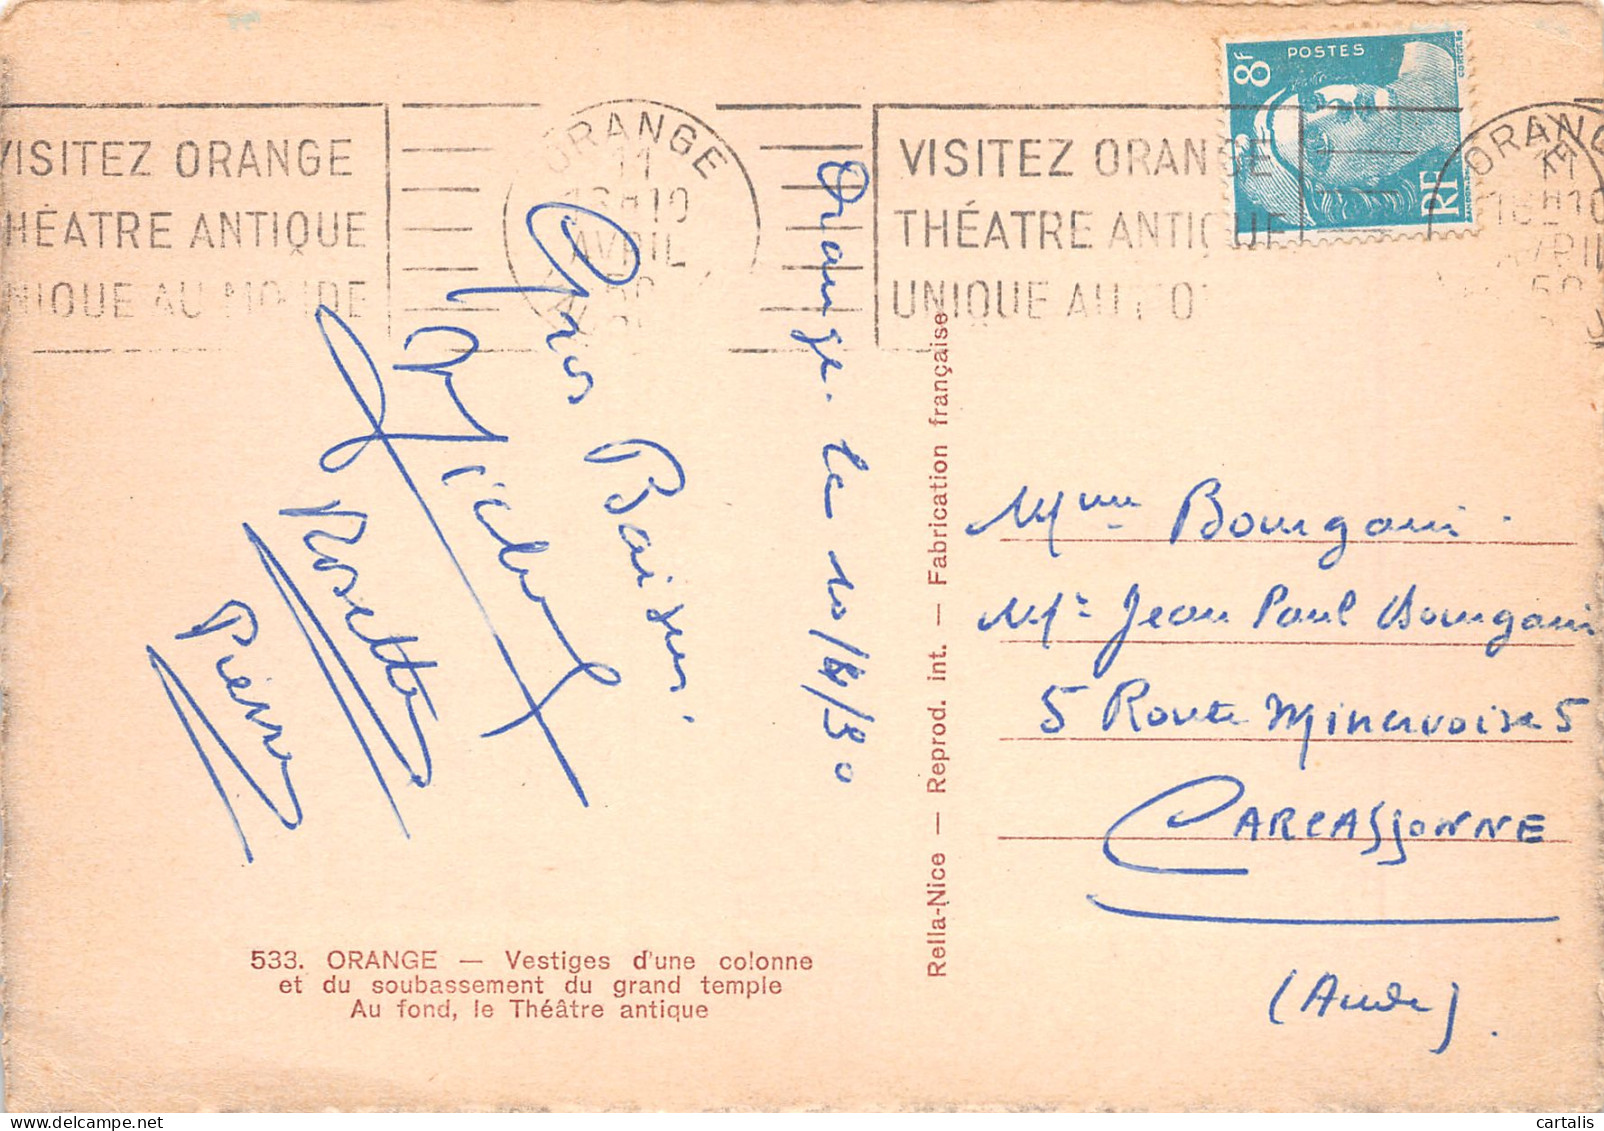 VISITEZ ORANGE
THÉATRE ANTIQUE
UNIQUE AU MONDE
ORANGE
11
18H10
AVRIL
VISITEZ ORANGE
THÉATRE ANTIQUE
UNIQUE AU MO
ORANGE
11
18H10
AVRIL
50
8F
POSTES
RF
Orange. le 10/4/50
Gros Baisers.
Michel
Rosette
Pierre
Mme Bourgoin.
Mr Jean Paul Bourgoin
5 Route Minervoise 5
CARCASSONNE
(Aude).
Rella-Nice — Reprod. int. — Fabrication française
533. ORANGE — Vestiges d'une colonne
et du soubassement du grand temple
Au fond, le Théâtre antique
cartalis
delcampe.net